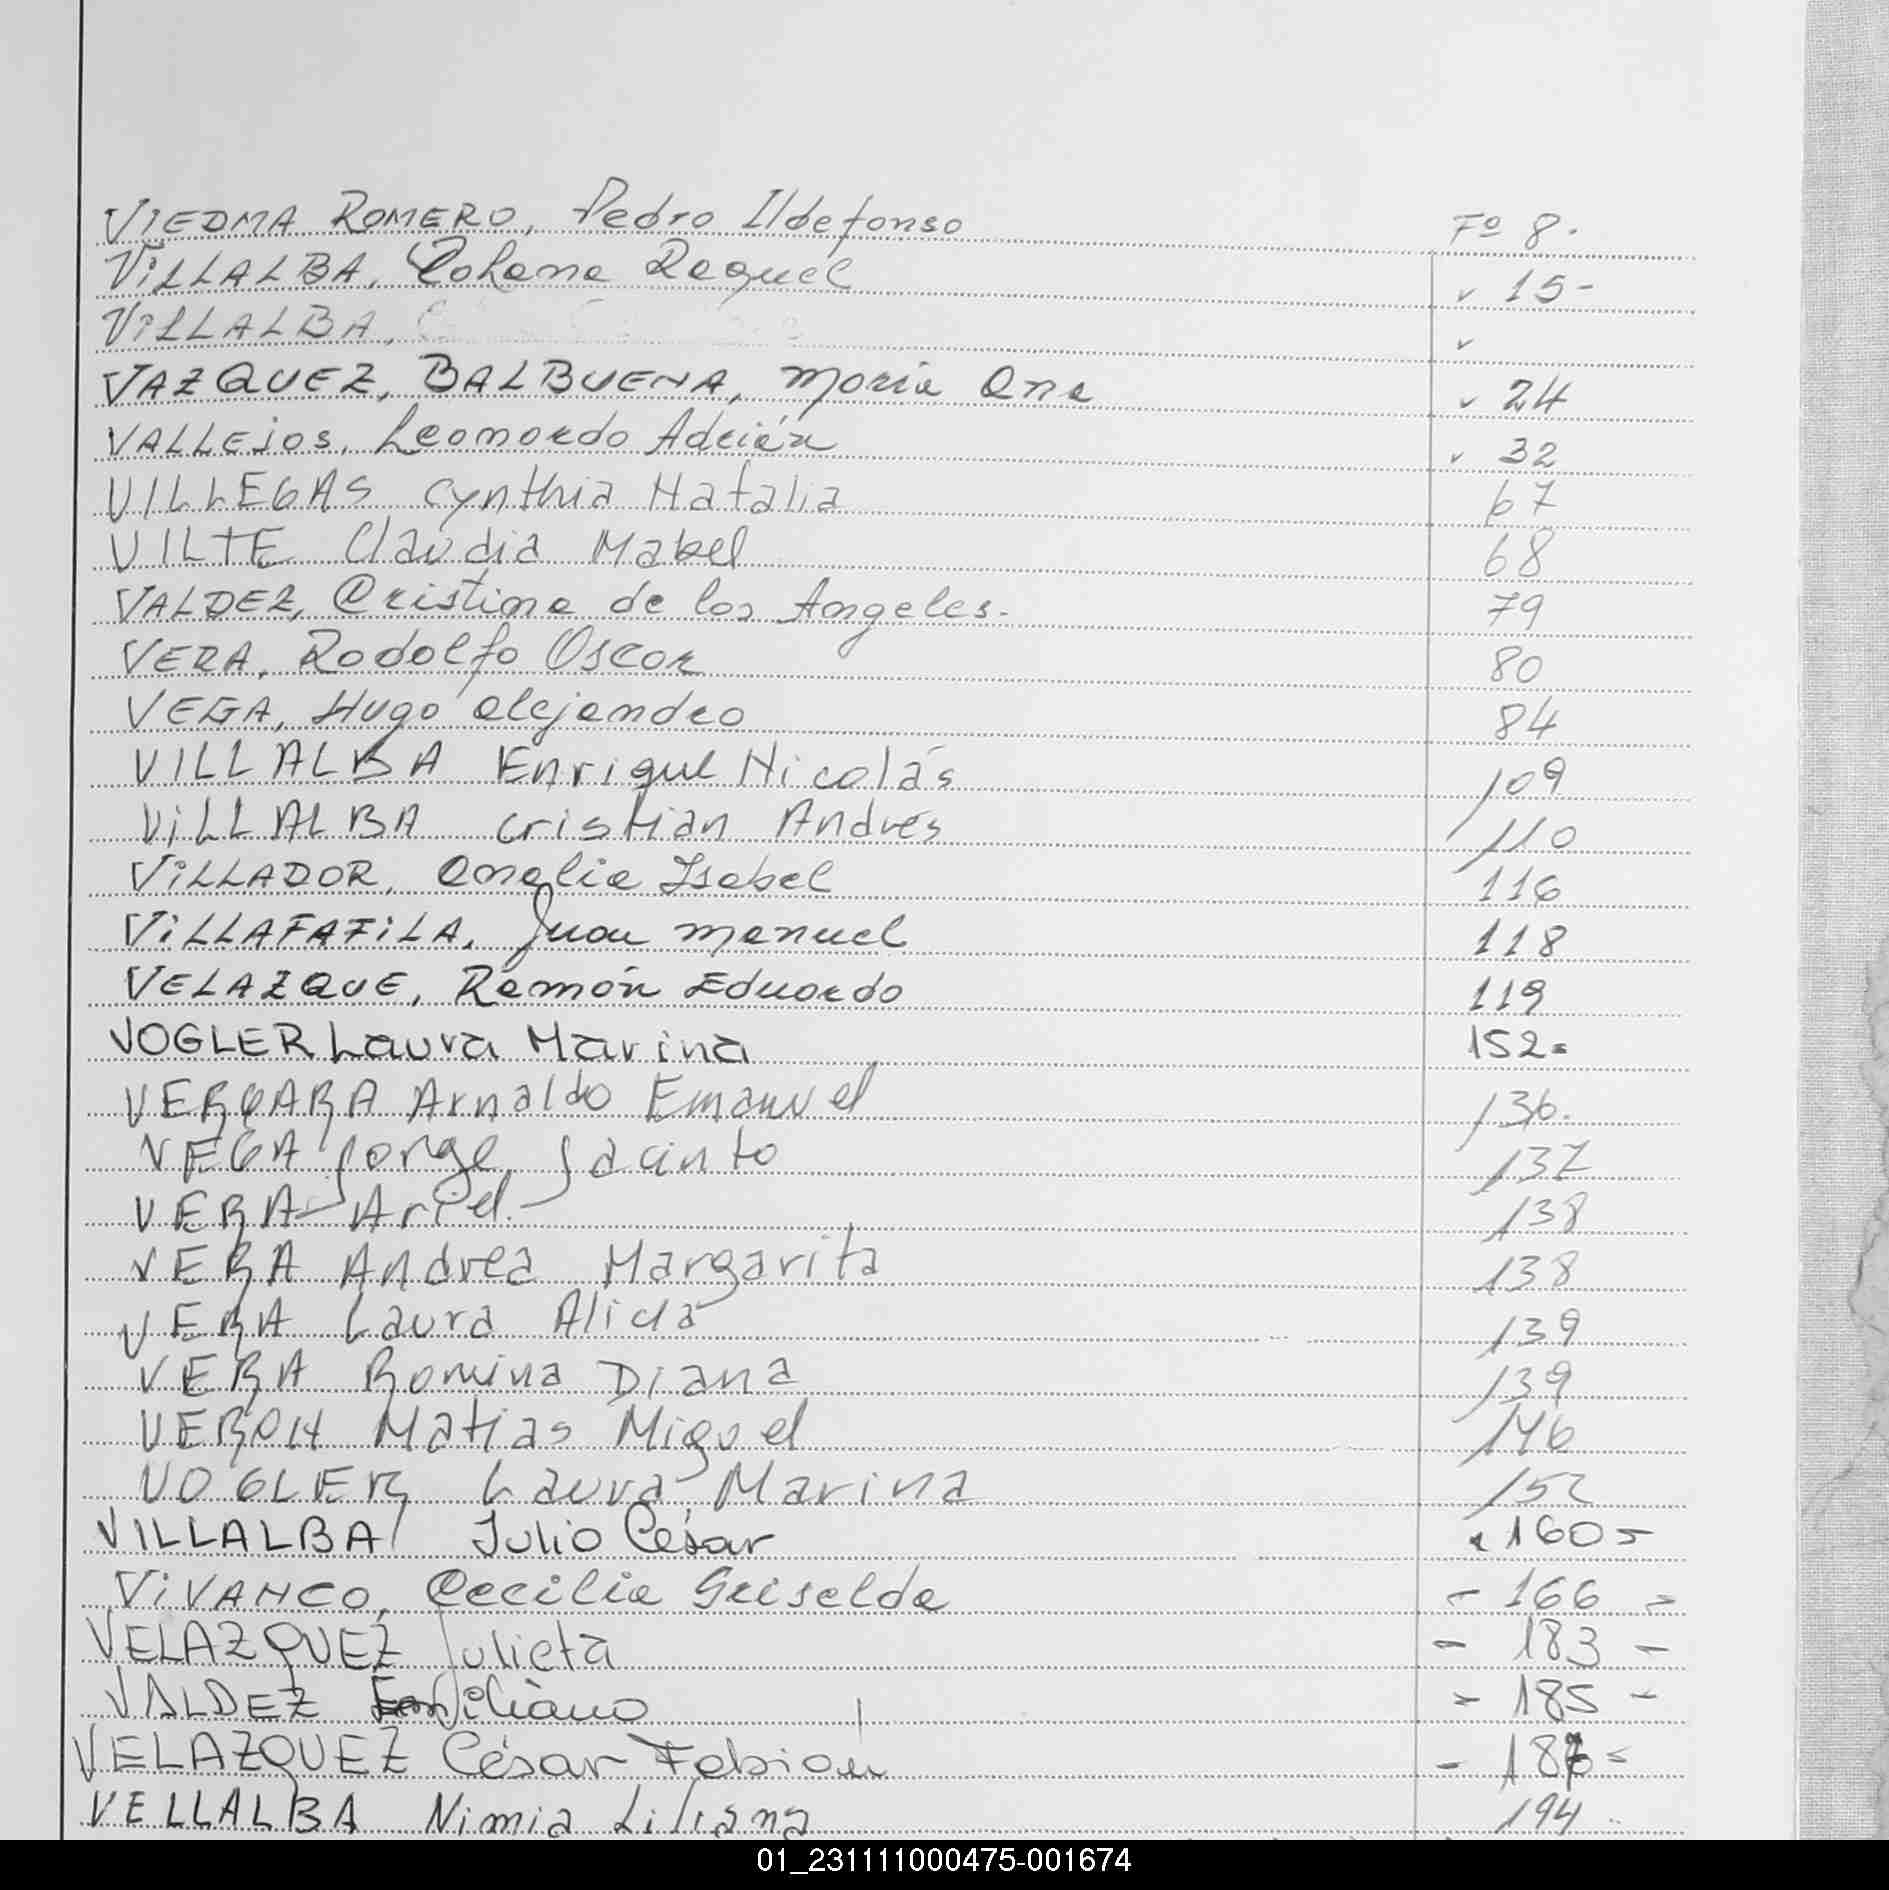 VIEDMA ROMERO, Pedro Ildefonso Fº 8.
VILLALBA, Rohana Raquel ✓ 15-
VILLALBA, ✓
VAZQUEZ, BALBUENA, María Ana ✓ 24
VALLEJOS, Leonardo Adrián ✓ 32
VILLEGAS Cynthia Natalia 67
VILTE Claudia Mabel 68
VALDEZ, Cristina de los Angeles. 79
VERA, Rodolfo Oscar 80
VEGA, Hugo Alejandro 84
VILLALBA Enrique Nicolás 109
VILLALBA Cristian Andrés 110
VILLADOR, Analia Isabel 116
VILLAFAFILA, Juan Manuel 118
VELAZQUE, Ramón Eduardo 119
VOGLER Laura Marina 152=
VERGARA Arnaldo Emanuel 136.
VEGA Jorge Jacinto 137
VERA Ariel. 138
VERA Andrea Margarita 138
VERA Laura Alicia 139
VERA Romina Diana 139
VERON Matias Miguel 146
VOGLER Laura Marina 152
VILLALBA Julio César 160-
VIVANCO, Cecilia Griselda - 166 =
VELAZQUEZ Julieta - 183 -
VALDEZ Emiliano - 185 -
VELAZQUEZ César Fabián
VELLALBA Nimia Liliana 194
01_231111000475-001674